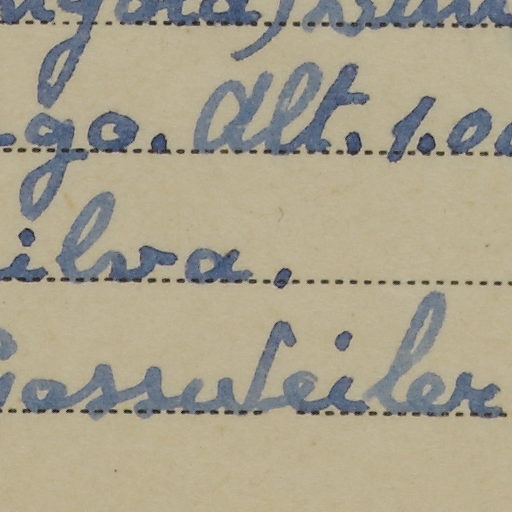 go. Alt. 1.00
ilva.
Gossweiler